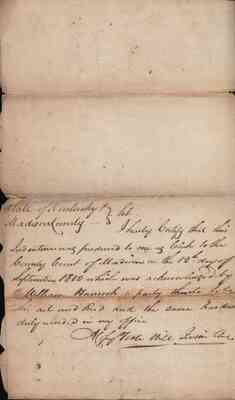 State of Kentucky
Madison County
I hereby Certify that this
Indenture was produced to me as Clerk to the
County Court of Madison on the 12th day of
September 18 which was acknowledged by
William a party thereto to be
his act and deed and the same
duly in my office
Will Irvine